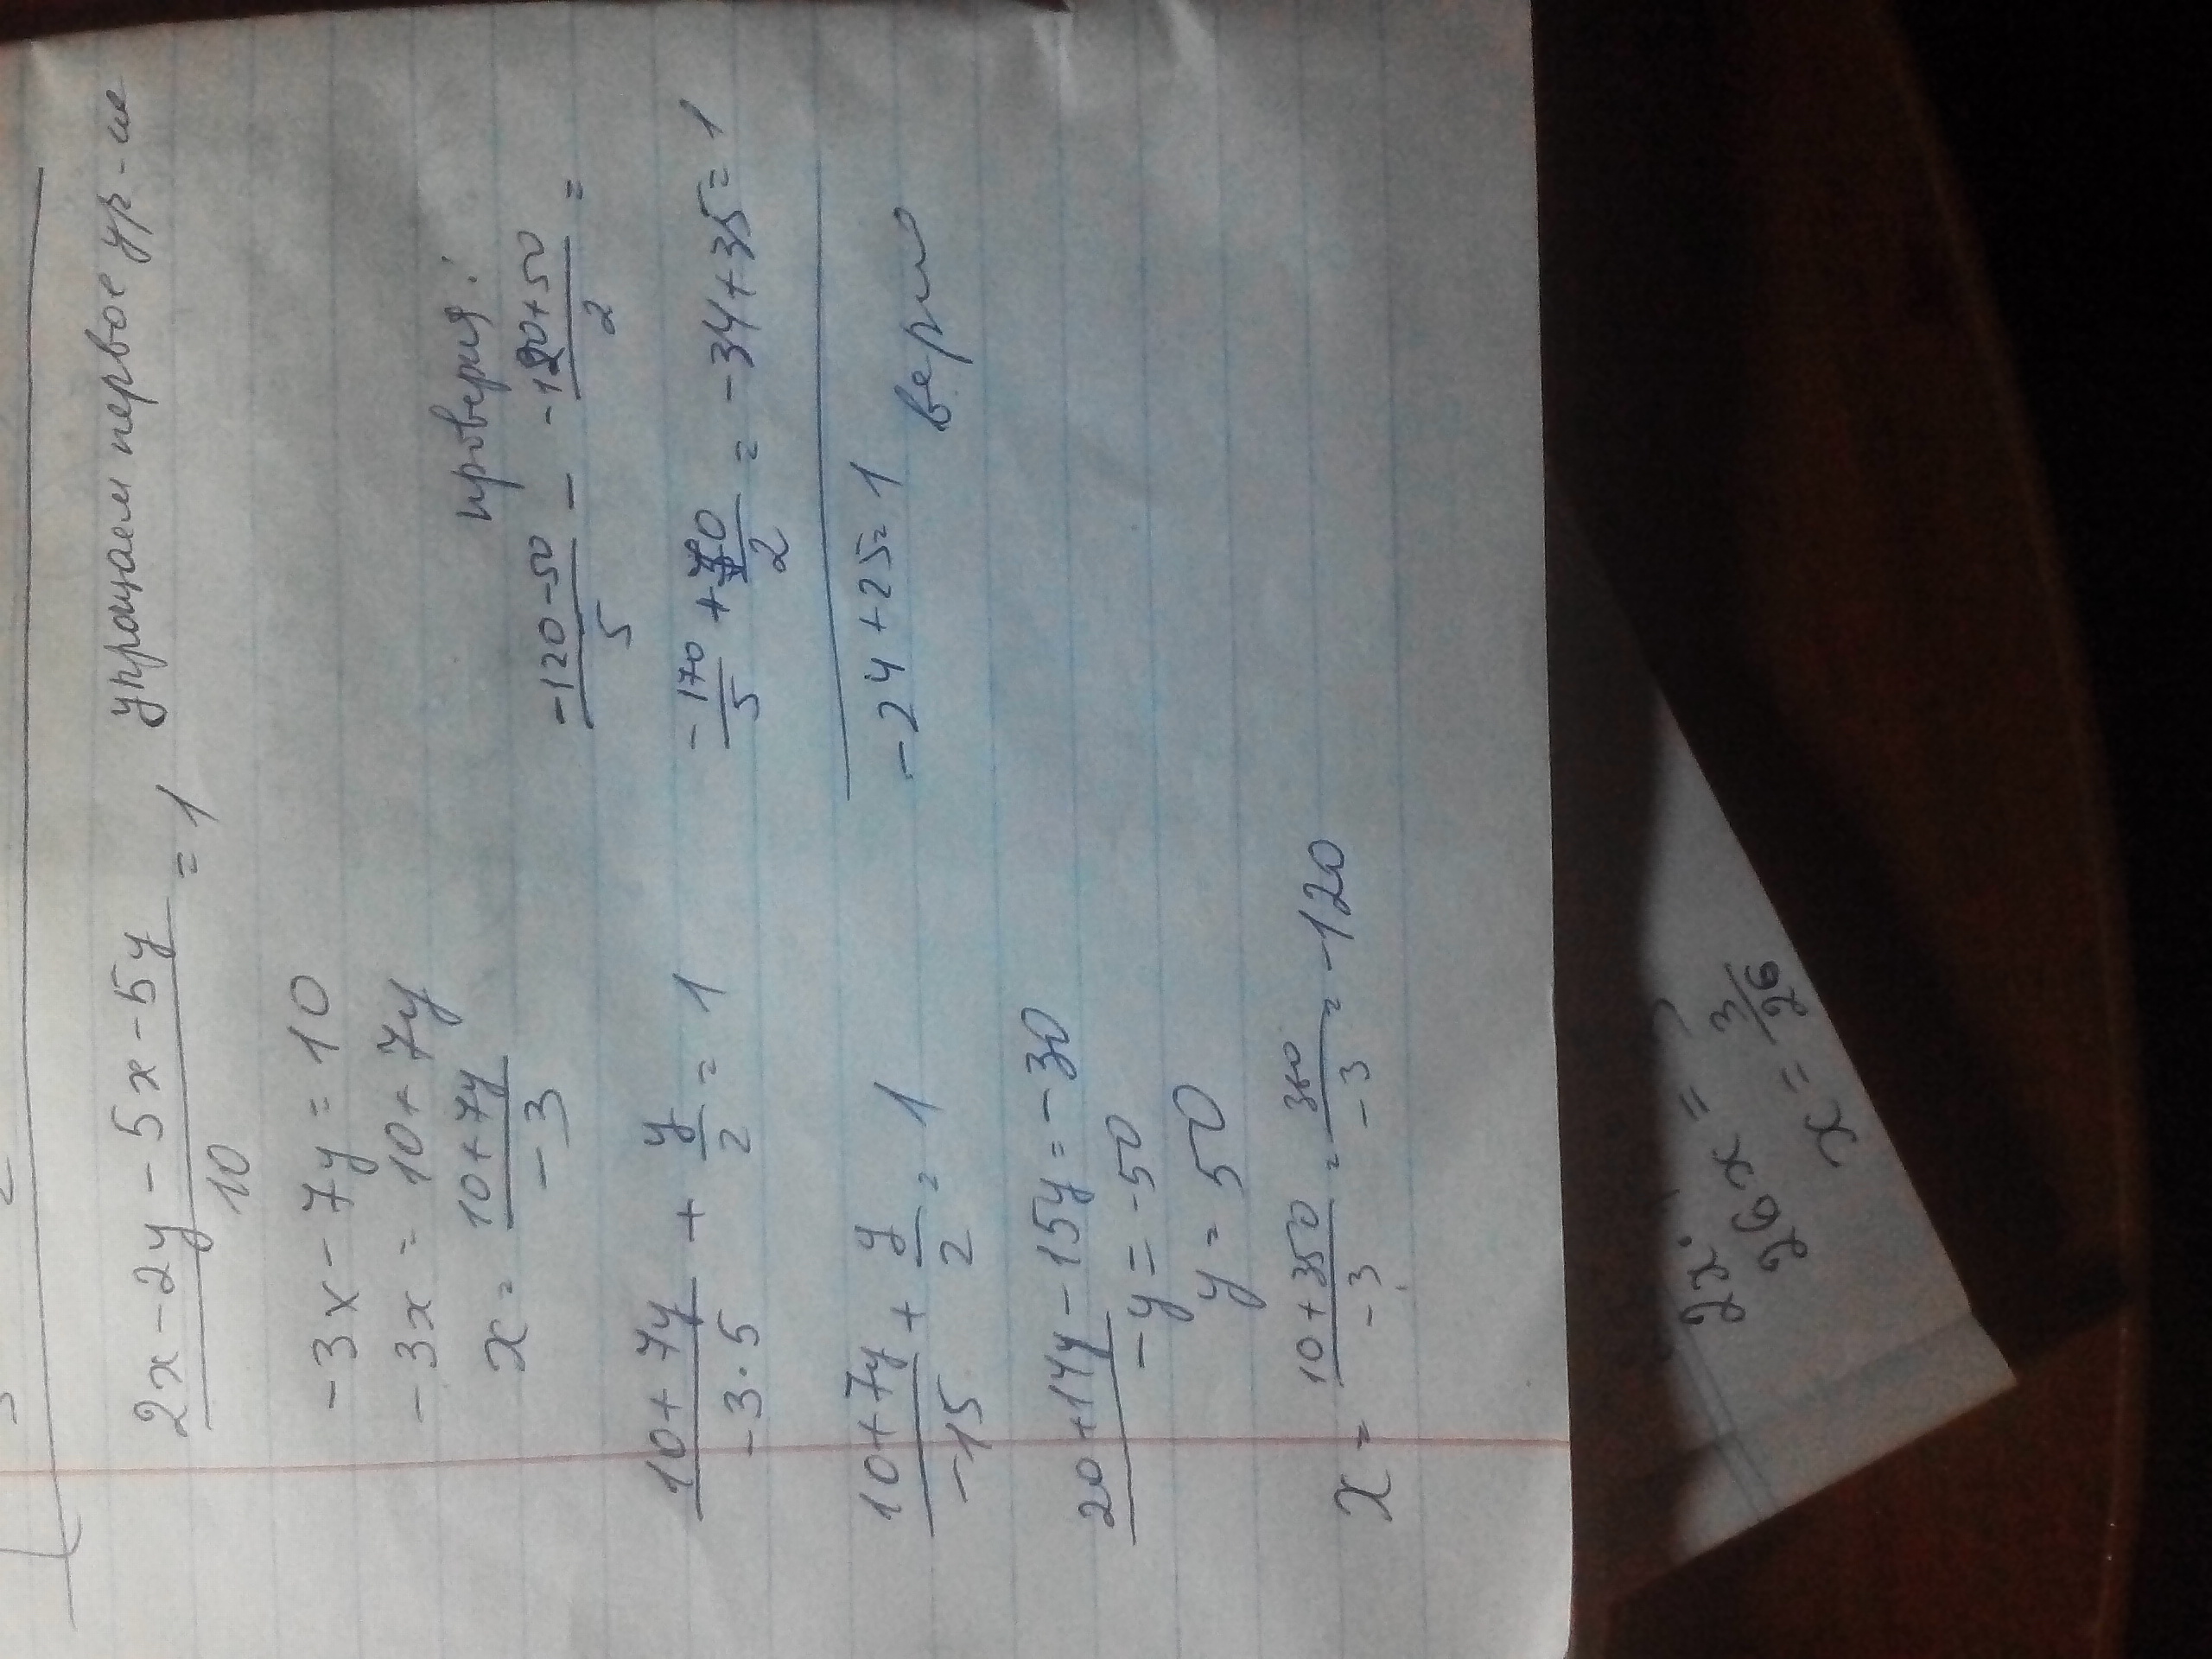 2x-2y-5x-5y / 10 = 1 упрощаем первое ур-ие
-3x-7y=10
-3x=10+7y
x= 10+7y / -3
10+7y / -3·5 + y/2 = 1
10+7y / -15 + y/2 = 1
20+14y-15y=-30
-y=-50
y=50
x= 10+350 / -3 = 360 / -3 = -120
проверка:
-120-50 / 5 - -120+50 / 2 =
-170/5 + 70/2 = -34+35=1
-24+25=1 верно
26x=
x= 3/26